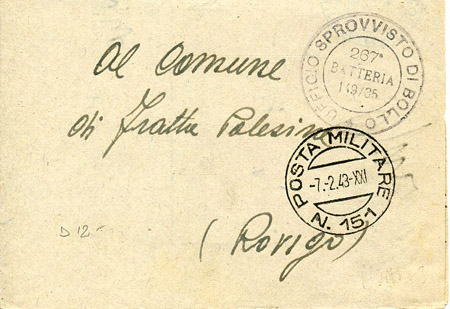 UFFICIO SPROVVISTO DI BOLLO
267ª
BATTERIA
149/35
Al Comune
di Fratta Polesine
POSTA MILITARE
-7.-2.43-XXI
N. 151
(Rovigo)
D 12-